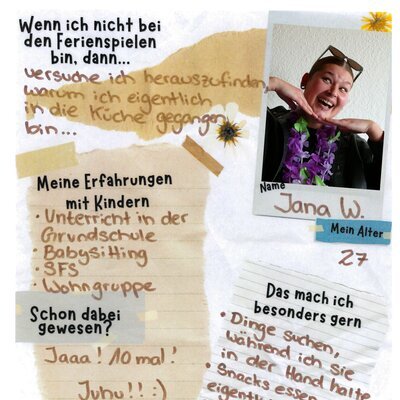 Wenn ich nicht bei
den Ferienspielen
bin, dann...
versuche ich herauszufinden,
warum ich eigentlich
in die Küche gegangen
bin...
Name
Jana W.
Mein Alter
27
Meine Erfahrungen
mit Kindern
• Unterricht in der
Grundschule
• Babysitting
• SFS
• Wohngruppe
Schon dabei
gewesen?
Jaaa! 10 mal!
Juhu!! :)
Das mach ich
besonders gern
• Dinge suchen,
während ich sie
in der Hand halte
• Snacks essen